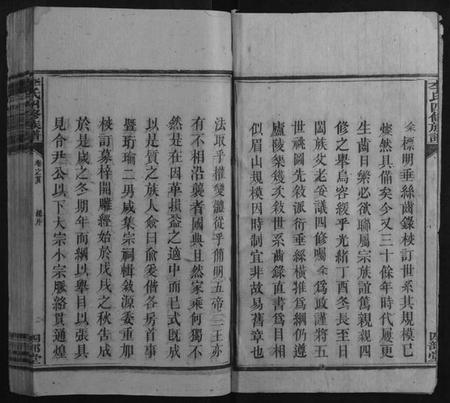 李氏四修族譜
余標明垂絲齒錄校訂世系其規模已
燦然具備矣今又三十餘年時代屢更
生齒日眾必欲聯屬宗族誼篤親親四
修之舉烏容緩乎光緒丁酉冬長至日
闔族父老妥議四修囑余為政謹將五
世歐圖先敘派衍垂絲橫推為綱仍遵
廬陵槃幾次敘世系齒錄直書為目相
似眉山規模因時制宜非故易舊章也
四部堂
法取乎權變體從乎簡明五帝三王亦
有不相沿襲者國典且然家乘何獨不
然是在因革損益之適中而已式既成
以是質之族人僉曰俞爰偕各房首事
暨珩瑜二男咸集宗祠輯敘源委重加
校訂募梓開雕經始於戊戌之秋告成
於是歲之冬期年而綱以舉目以張具
見合尹公以下大宗小宗脈絡貫通煌
李氏四修族譜
卷之首
四部堂